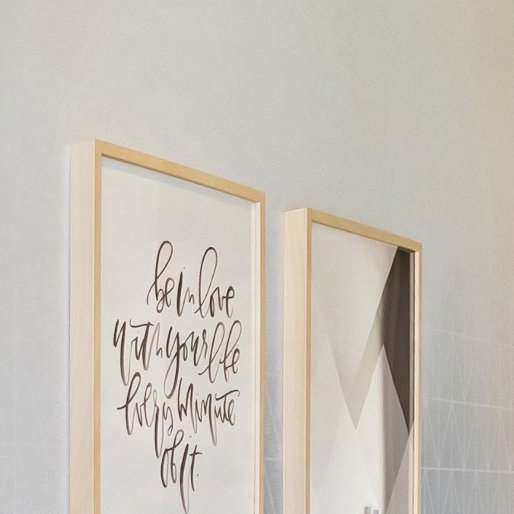 be in love
with your life
every minute
of it.